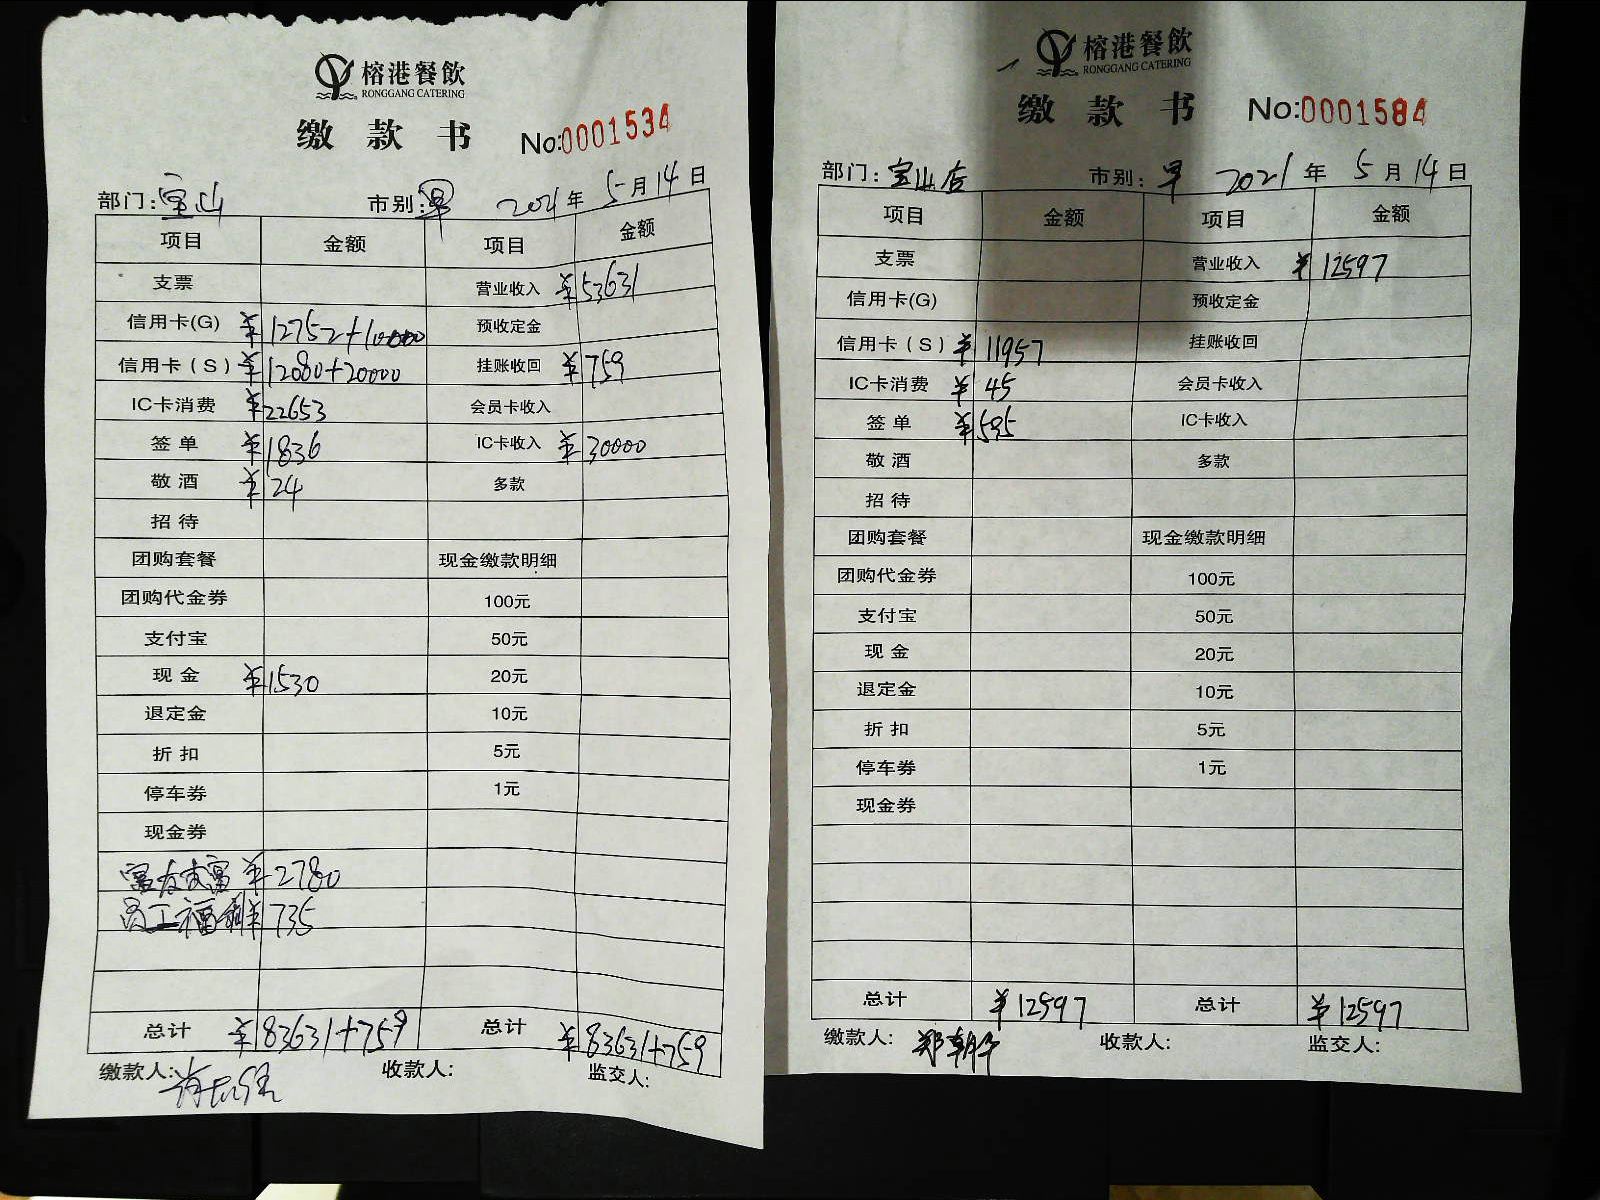 榕港餐飲
RONGGANG CATERING
缴款书 No:0001534
部门:宝山 市别:早 2021年5月14日
项目 金额 项目 金额
支票 营业收入 ¥53631
信用卡(G) ¥12752+10000 预收定金
信用卡(S) ¥12080+20000 挂账收回 ¥759
IC卡消费 ¥22653 会员卡收入
签单 ¥1836 IC卡收入 ¥30000
敬酒 ¥24 多款
招待
团购套餐 现金缴款明细
团购代金券 100元
支付宝 50元
现金 ¥1530 20元
退定金 10元
折扣 5元
停车券 1元
现金券
富友支富 ¥2780
员工福利 ¥735
总计 ¥83631+759 总计 ¥83631+759
缴款人: 收款人: 监交人:
榕港餐飲
RONGGANG CATERING
缴款书 No:0001584
部门:宝山店 市别:早 2021年5月14日
项目 金额 项目 金额
支票 营业收入 ¥12597
信用卡(G) 预收定金
信用卡(S) ¥11957 挂账收回
IC卡消费 ¥45 会员卡收入
签单 ¥595 IC卡收入
敬酒 多款
招待
团购套餐 现金缴款明细
团购代金券 100元
支付宝 50元
现金 20元
退定金 10元
折扣 5元
停车券 1元
现金券
总计 ¥12597 总计 ¥12597
缴款人: 收款人: 监交人: